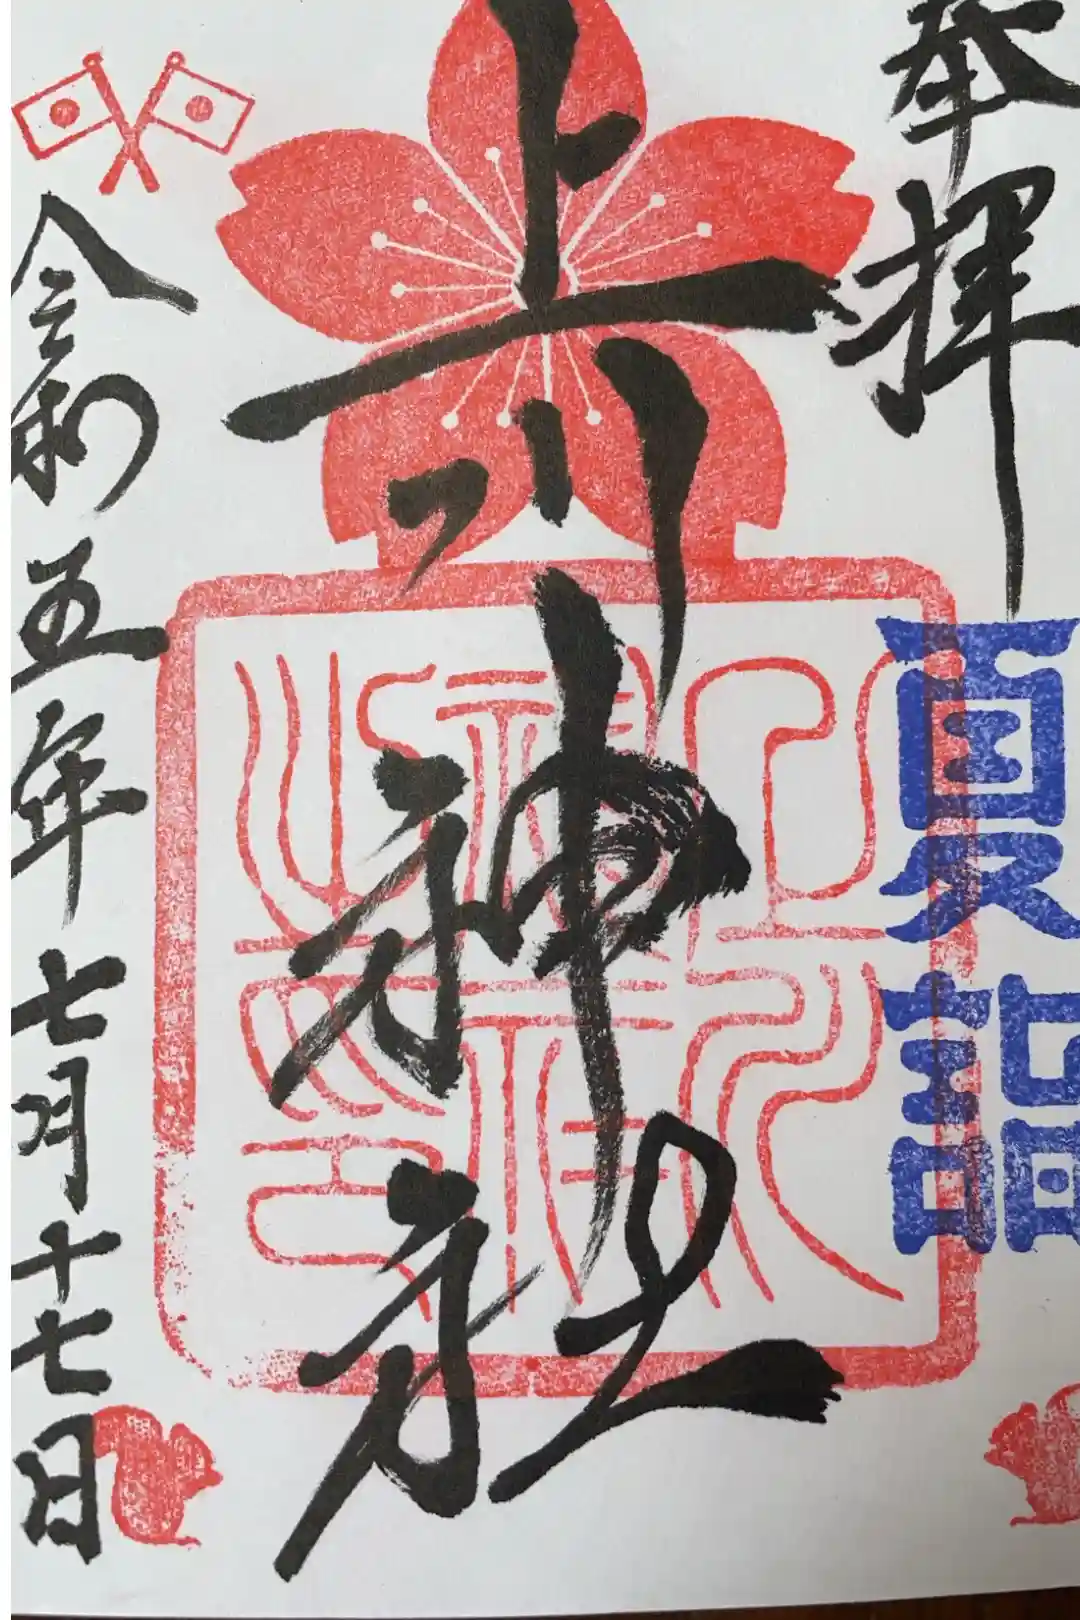 奉拝
夏詣
上川神社
令和五年七月十七日